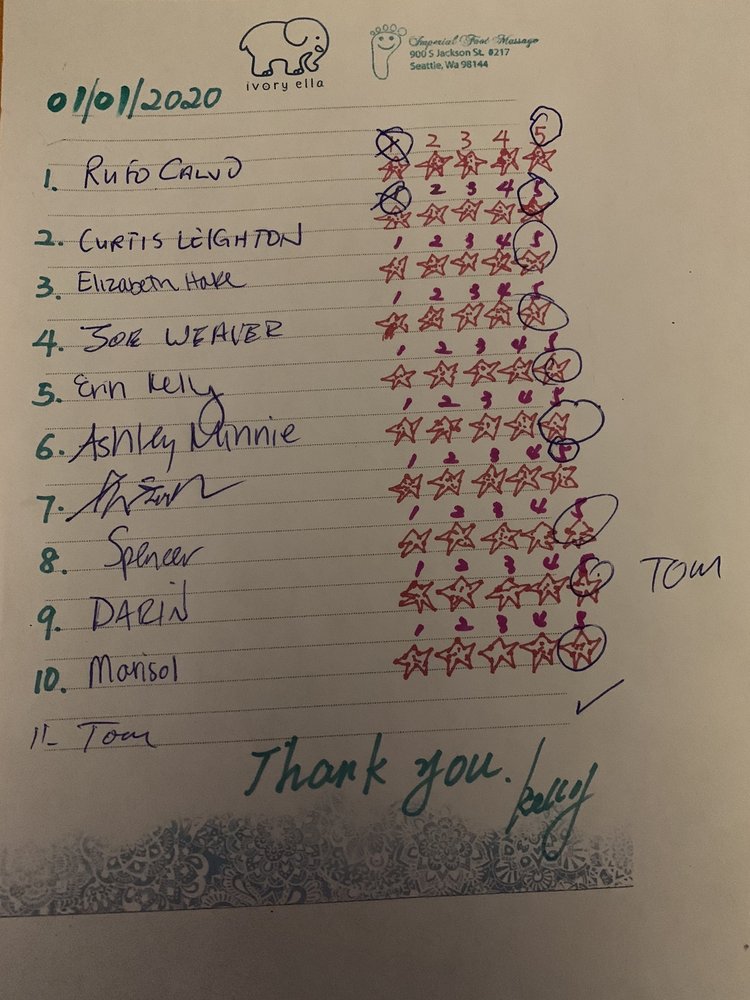 ivory ella
Imperial Foot Massage
900 S Jackson St. #217
Seattle, Wa 98144
01/01/2020
1 2 3 4 5
1. RUFO CALVO
1 2 3 4 5
2. CURTIS LEIGHTON
1 2 3 4 5
3. Elizabeth Hake
1 2 3 4 5
4. JOE WEAVER
1 2 3 4 5
5. Erin Kelly
1 2 3 4 5
6. Ashley Minnie
1 2 3 4 5
7.
1 2 3 4 5
8. Spencer
1 2 3 4 5 Tom
9. DARIN
1 2 3 4 5
10. Marisol
11- Tom
Thank you. Kelly